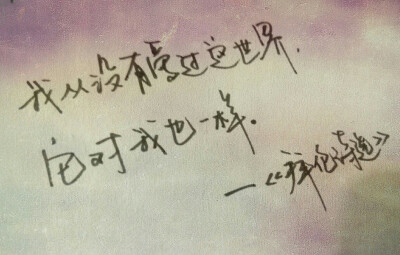 我从没有爱过这世界.
它对我也一样.
—《拜伦诗选》